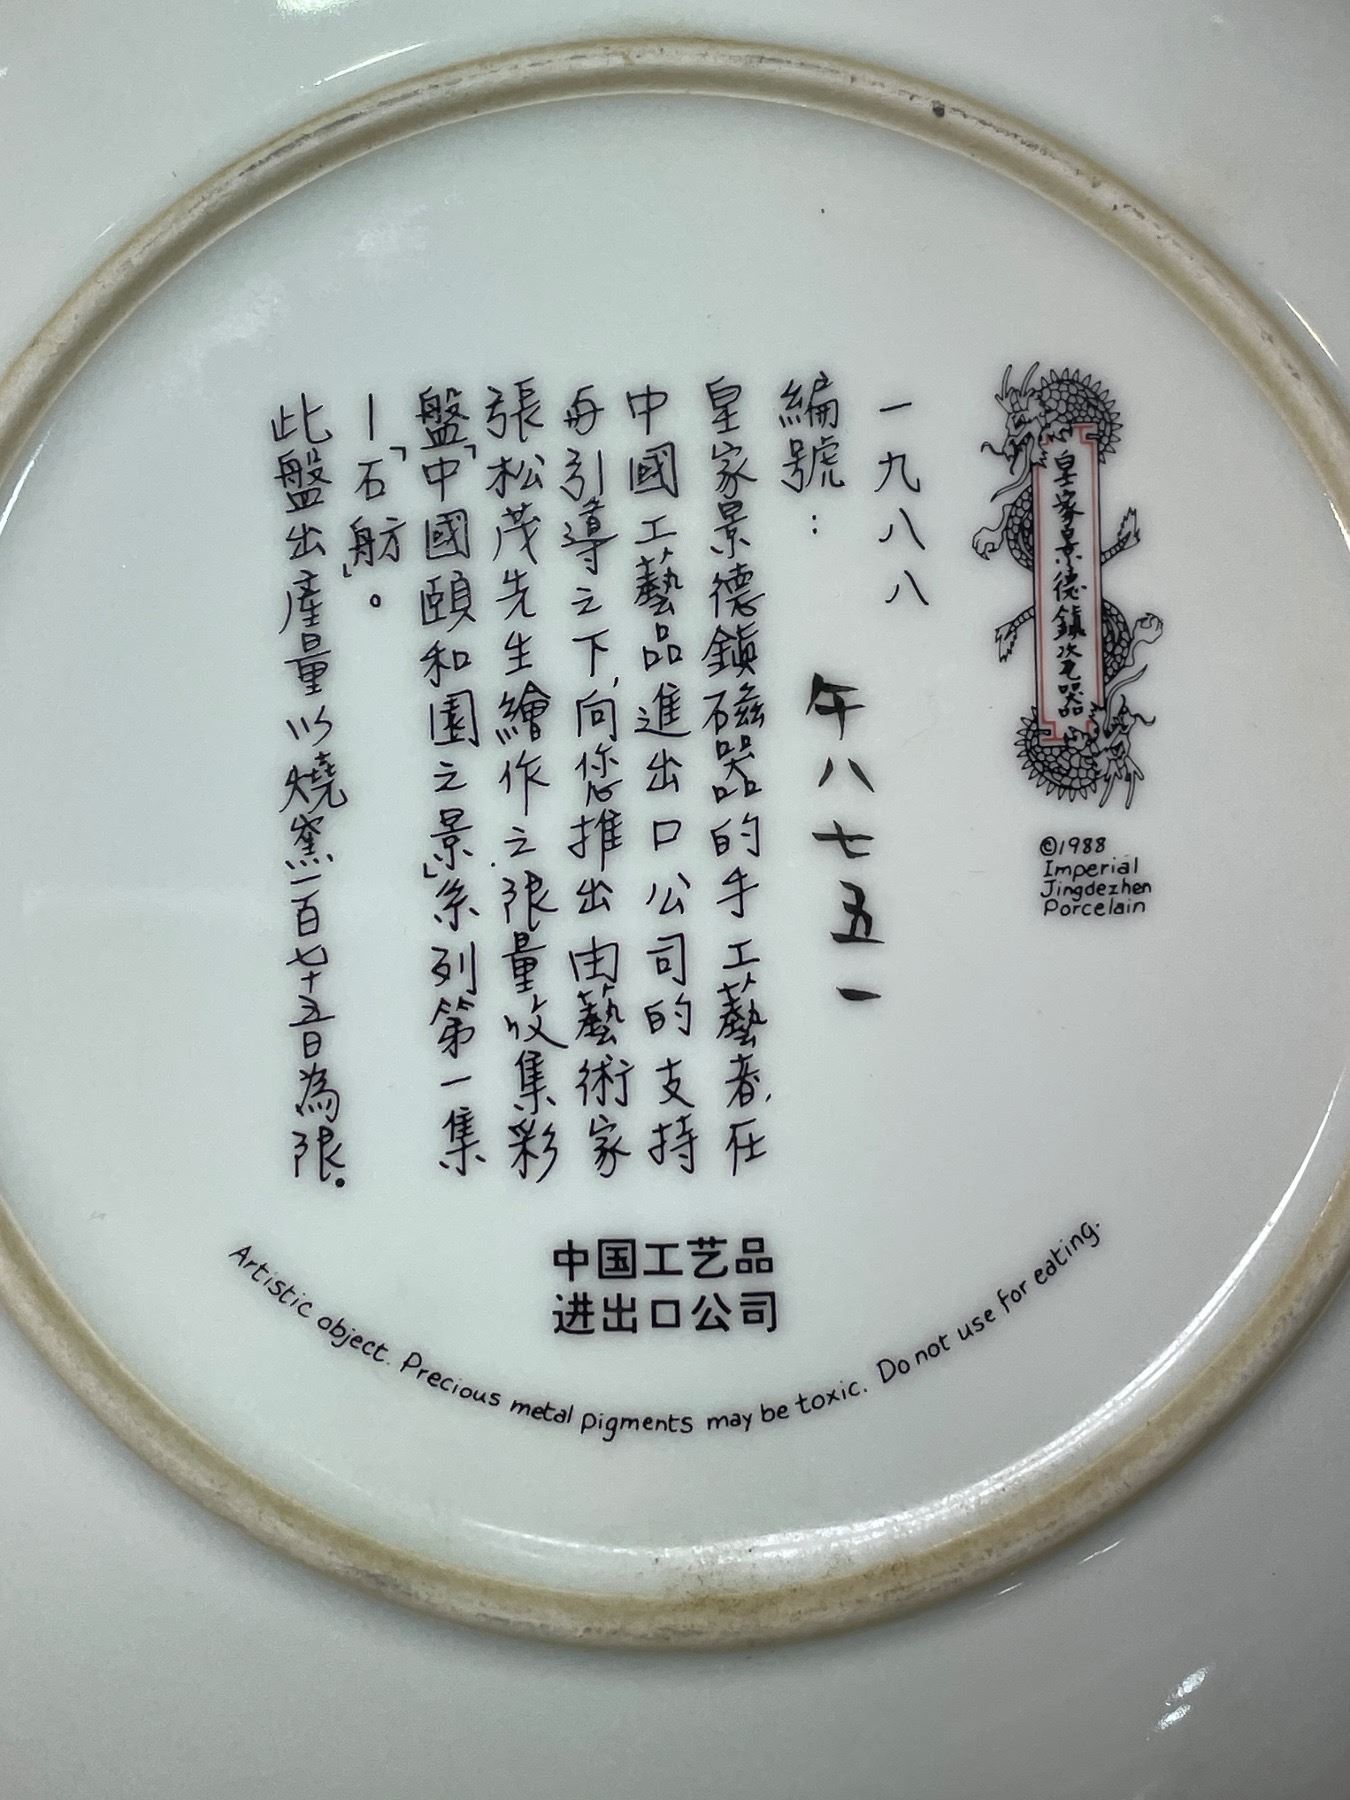 皇家景德鎮瓷器
©1988
Imperial
Jingdezhen
Porcelain
一九八八
編號：午八七五一
皇家景德鎮磁器的手工藝者在
中國工藝品進出口公司的支持
再引導之下，向您推出由藝術家
張松茂先生繪作之限量收集彩
盤「中國頤和園之景」系列第一集
—「石舫」。
此盤出產量以燒窯一百七十五日為限.
中国工艺品
进出口公司
Artistic object. Precious metal pigments may be toxic. Do not use for eating.